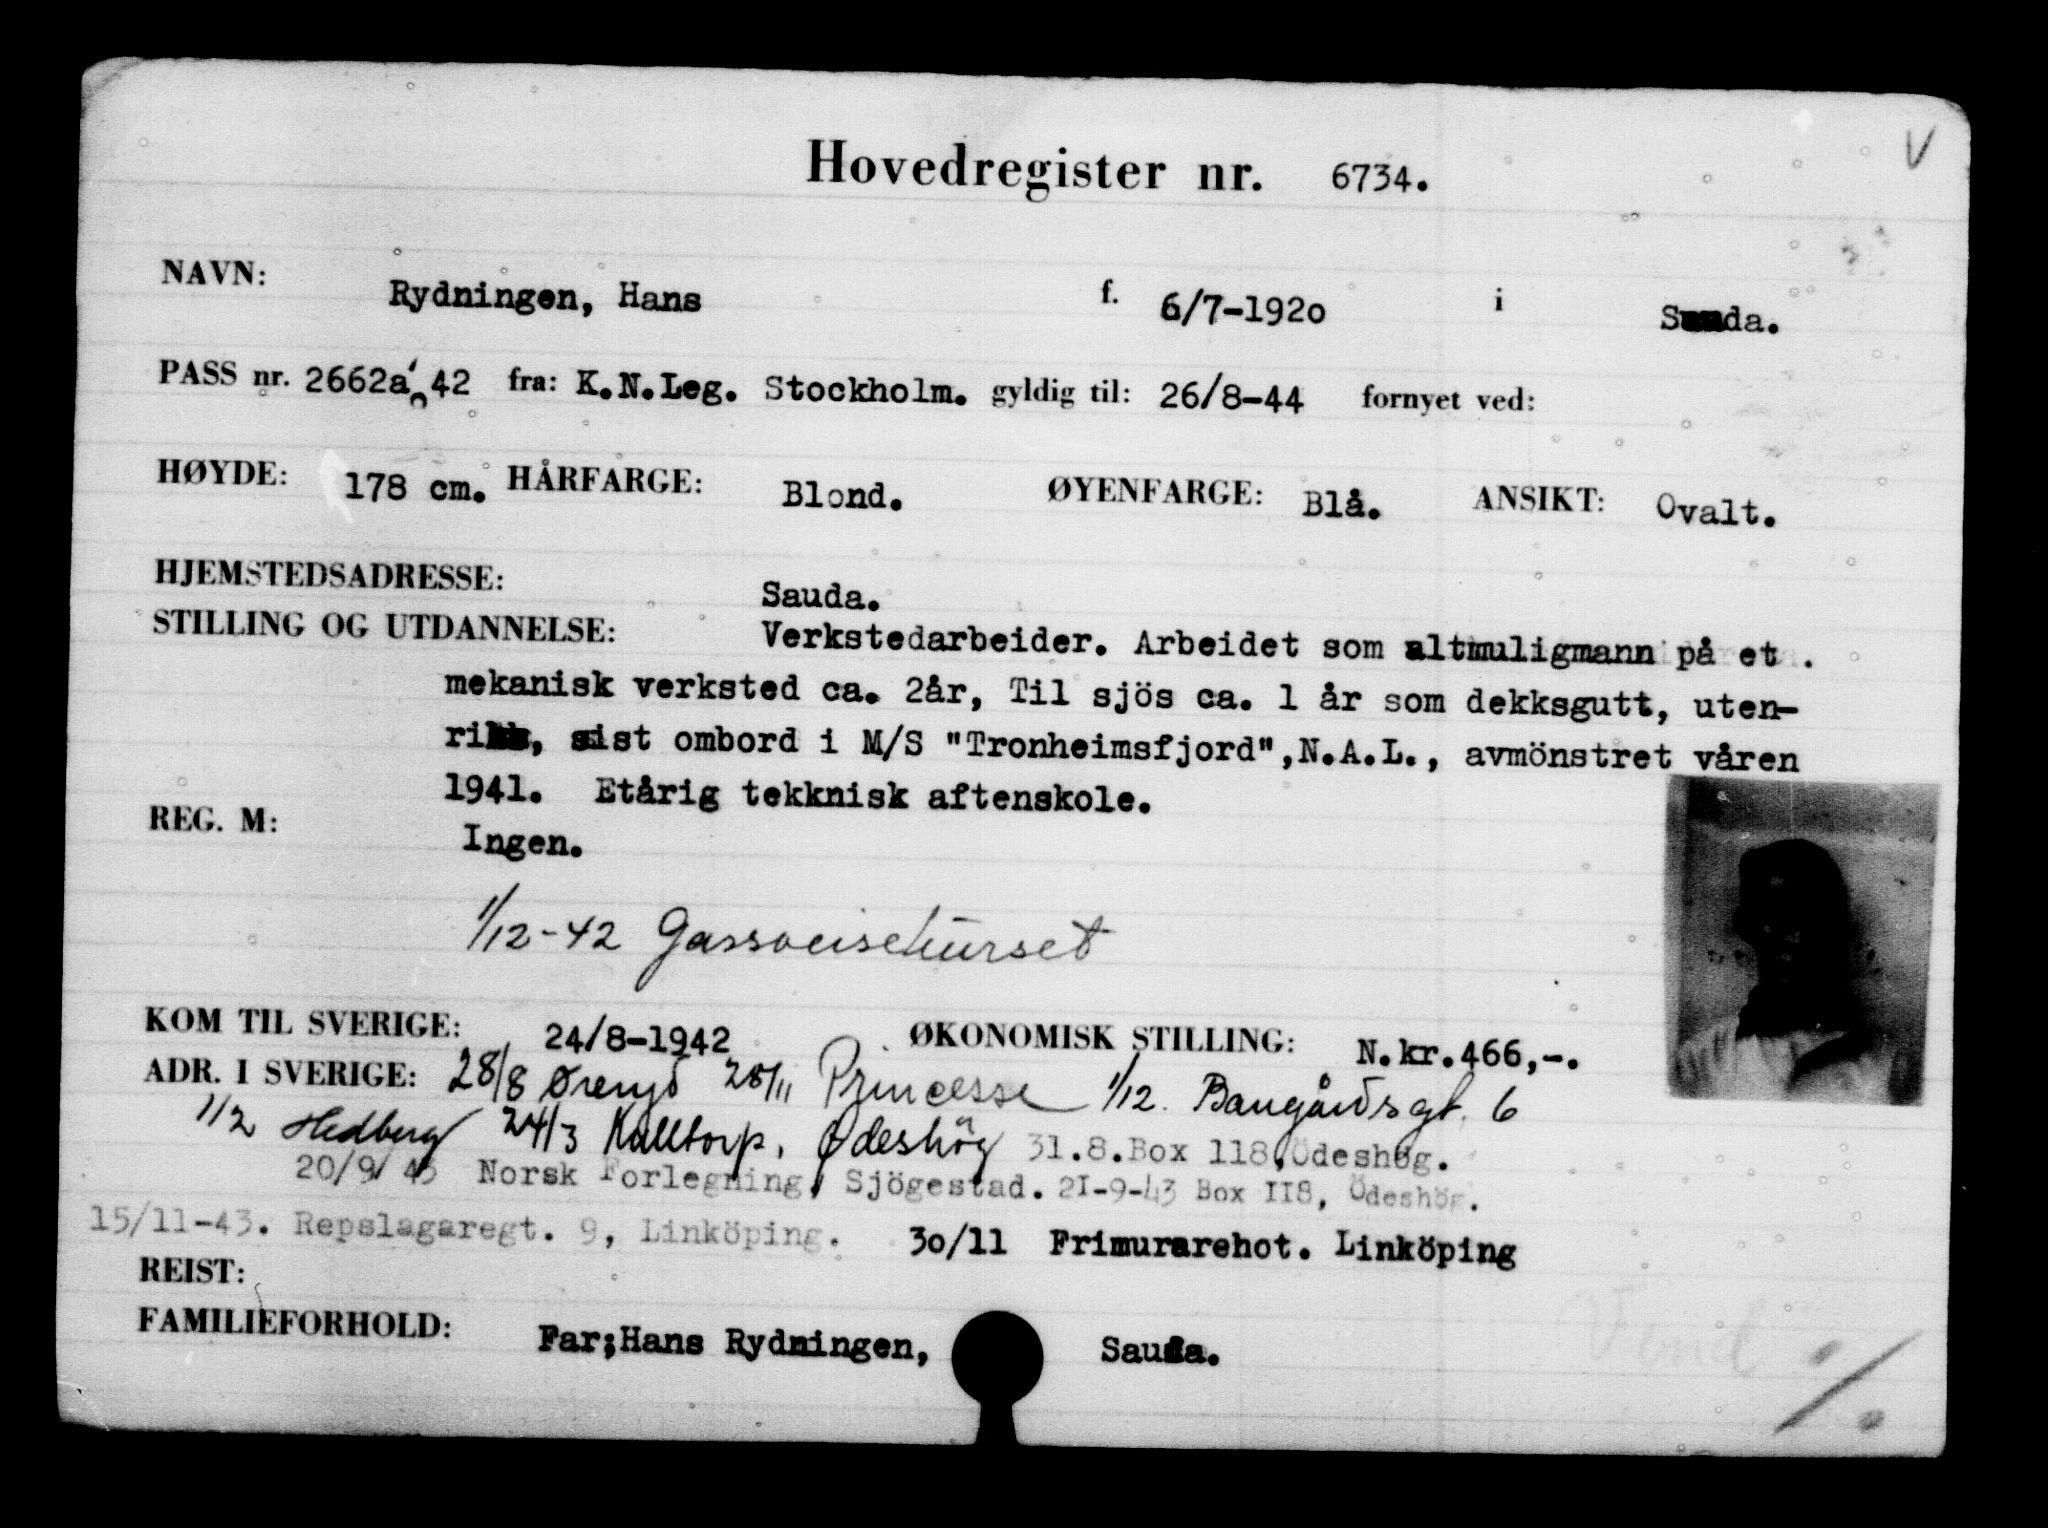 V
Hovedregister nr. 6734.
NAVN: Rydningen, Hans f. 6/7-1920 i Sauda.
PASS nr. 2662a/42 fra: K.N.Leg. Stockholm. gyldig til: 26/8-44 fornyet ved:
HØYDE: 178 cm. HÅRFARGE: Blond. ØYENFARGE: Blå. ANSIKT: Ovalt.
HJEMSTEDSADRESSE: Sauda.
STILLING OG UTDANNELSE: Verkstedarbeider. Arbeidet som altmuligmann på et
mekanisk verksted ca. 2år, Til sjös ca. 1 år som dekksgutt, uten-
riks, sist ombord i M/S "Tronheimsfjord",N.A.L., avmönstret våren
1941. Etårig tekknisk aftenskole.
REG. M: Ingen.
1/12-42 Gassveisekurset
KOM TIL SVERIGE: 24/8-1942 ØKONOMISK STILLING: N.kr.466,-.
ADR. I SVERIGE: 28/8 Øreryd 28/11 Princesse 1/12. Bangårdsgt. 6
1/2 Hedberg 24/3 Kalltorp, Ødeshög 31.8.Box 118,Ödeshög.
20/9 43 Norsk Forlegning, Sjögestad. 21-9-43 Box 118, Ödeshög.
15/11-43. Repslagaregt. 9, Linköping. 30/11 Frimurarehot. Linköping
REIST:
FAMILIEFORHOLD: Far;Hans Rydningen, Sauda.